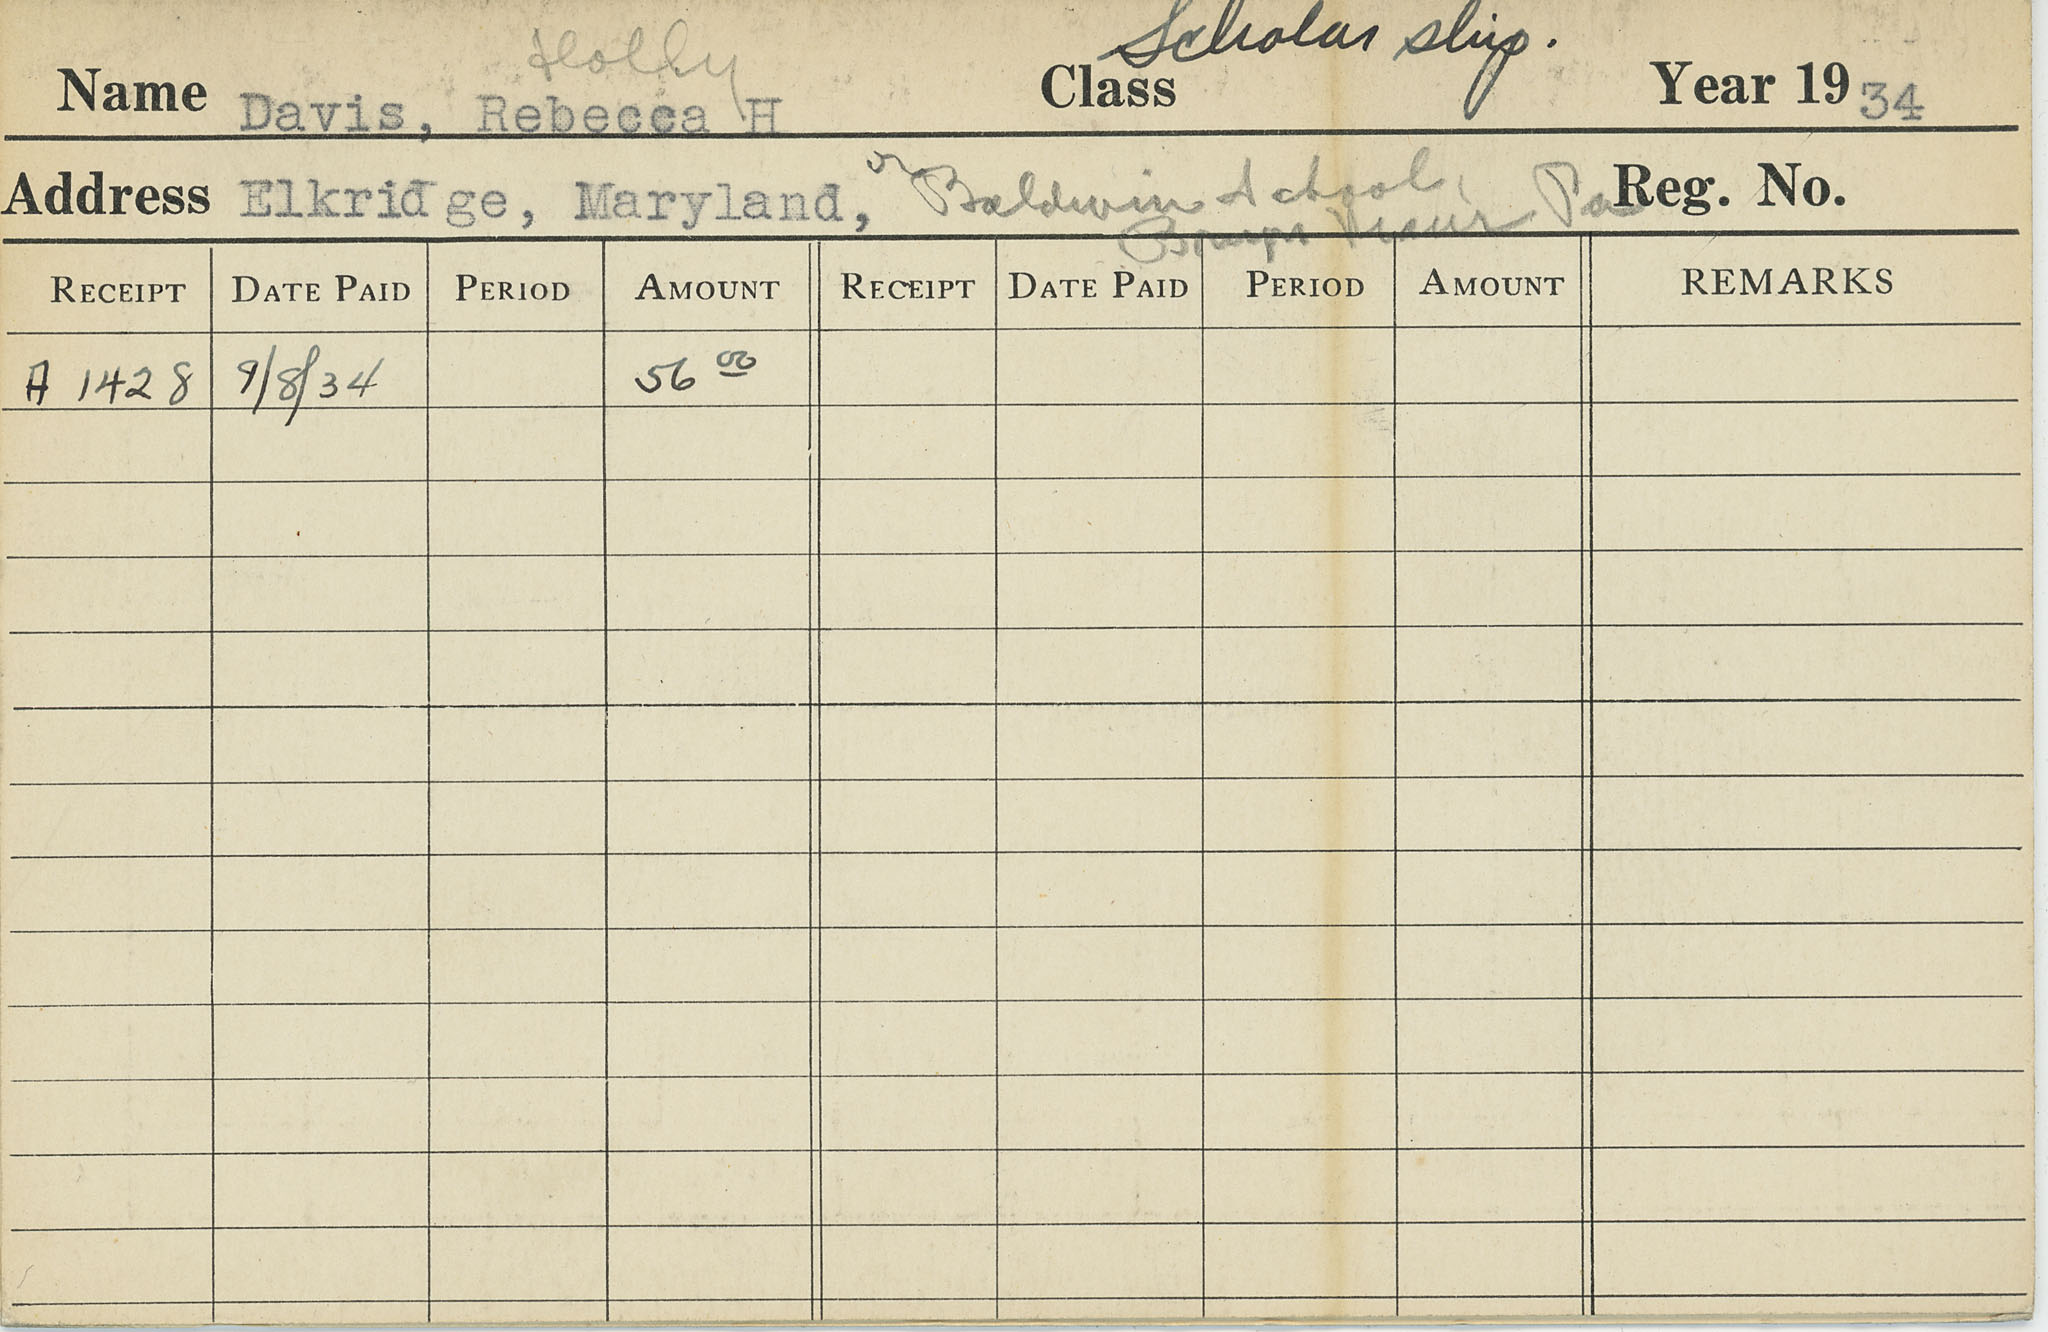 Holly Scholarship.
Name Davis, Rebecca H Class Year 19 34
Address Elkridge, Maryland, or Baldwin School, Reg. No.
Bryn Mawr Pa
RECEIPT DATE PAID PERIOD AMOUNT RECEIPT DATE PAID PERIOD AMOUNT REMARKS
A 1428 9/8/34 56 00